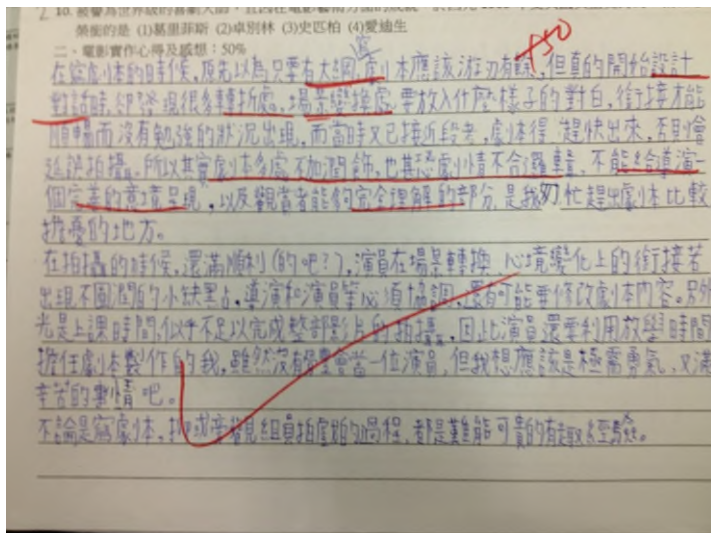 10. 被譽為世界級的喜劇大師
榮銜的是 (1)葛里菲斯 (2)卓別林 (3)史匹柏 (4)愛迪生
二、電影實作心得及感想:50%
+50
在寫劇本的時候,原先以為只要有大綱,劇本應該游刃有餘,但真的開始設計
對話時,卻發現很多轉折處、場景變換處,要放入什麼樣子的對白,銜接才能
順暢而沒有勉強的狀況出現,而當時又已接近段考,劇本得趕快出來,否則會
延誤拍攝。所以其實劇本多處不加潤飾,也其恐劇情不合邏輯,不能給導演一
個完善的意境呈現,以及觀賞者能夠完全理解的部分,是我匆忙趕出劇本比較
擔憂的地方。
在拍攝的時候,還滿順利(的吧?),演員在場景轉換、心境變化上的銜接若
出現不圓潤的小缺點,導演和演員等必須協調,還有可能要修改劇本內容。另外
光是上課時間,似乎不足以完成整部影片的拍攝,因此演員還要利用放學時間
擔任劇本製作的我,雖然沒有 當一位演員,但我想應該是極需勇氣,又滿
辛苦的事情吧。
不論是寫劇本,抑或旁觀組員拍戲的過程,都是難能可貴的有趣經驗。